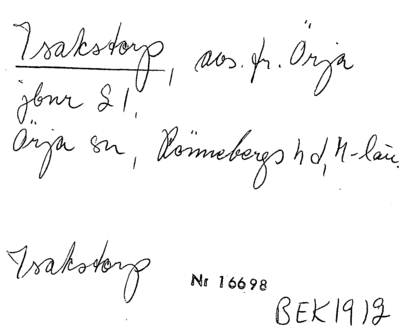 Isakstorp, avs. fr. Örja
jbnr 21,
Örja sn, Rönnebergs hd, M-län.
Isakstorp
Nr 16698
BEK1912